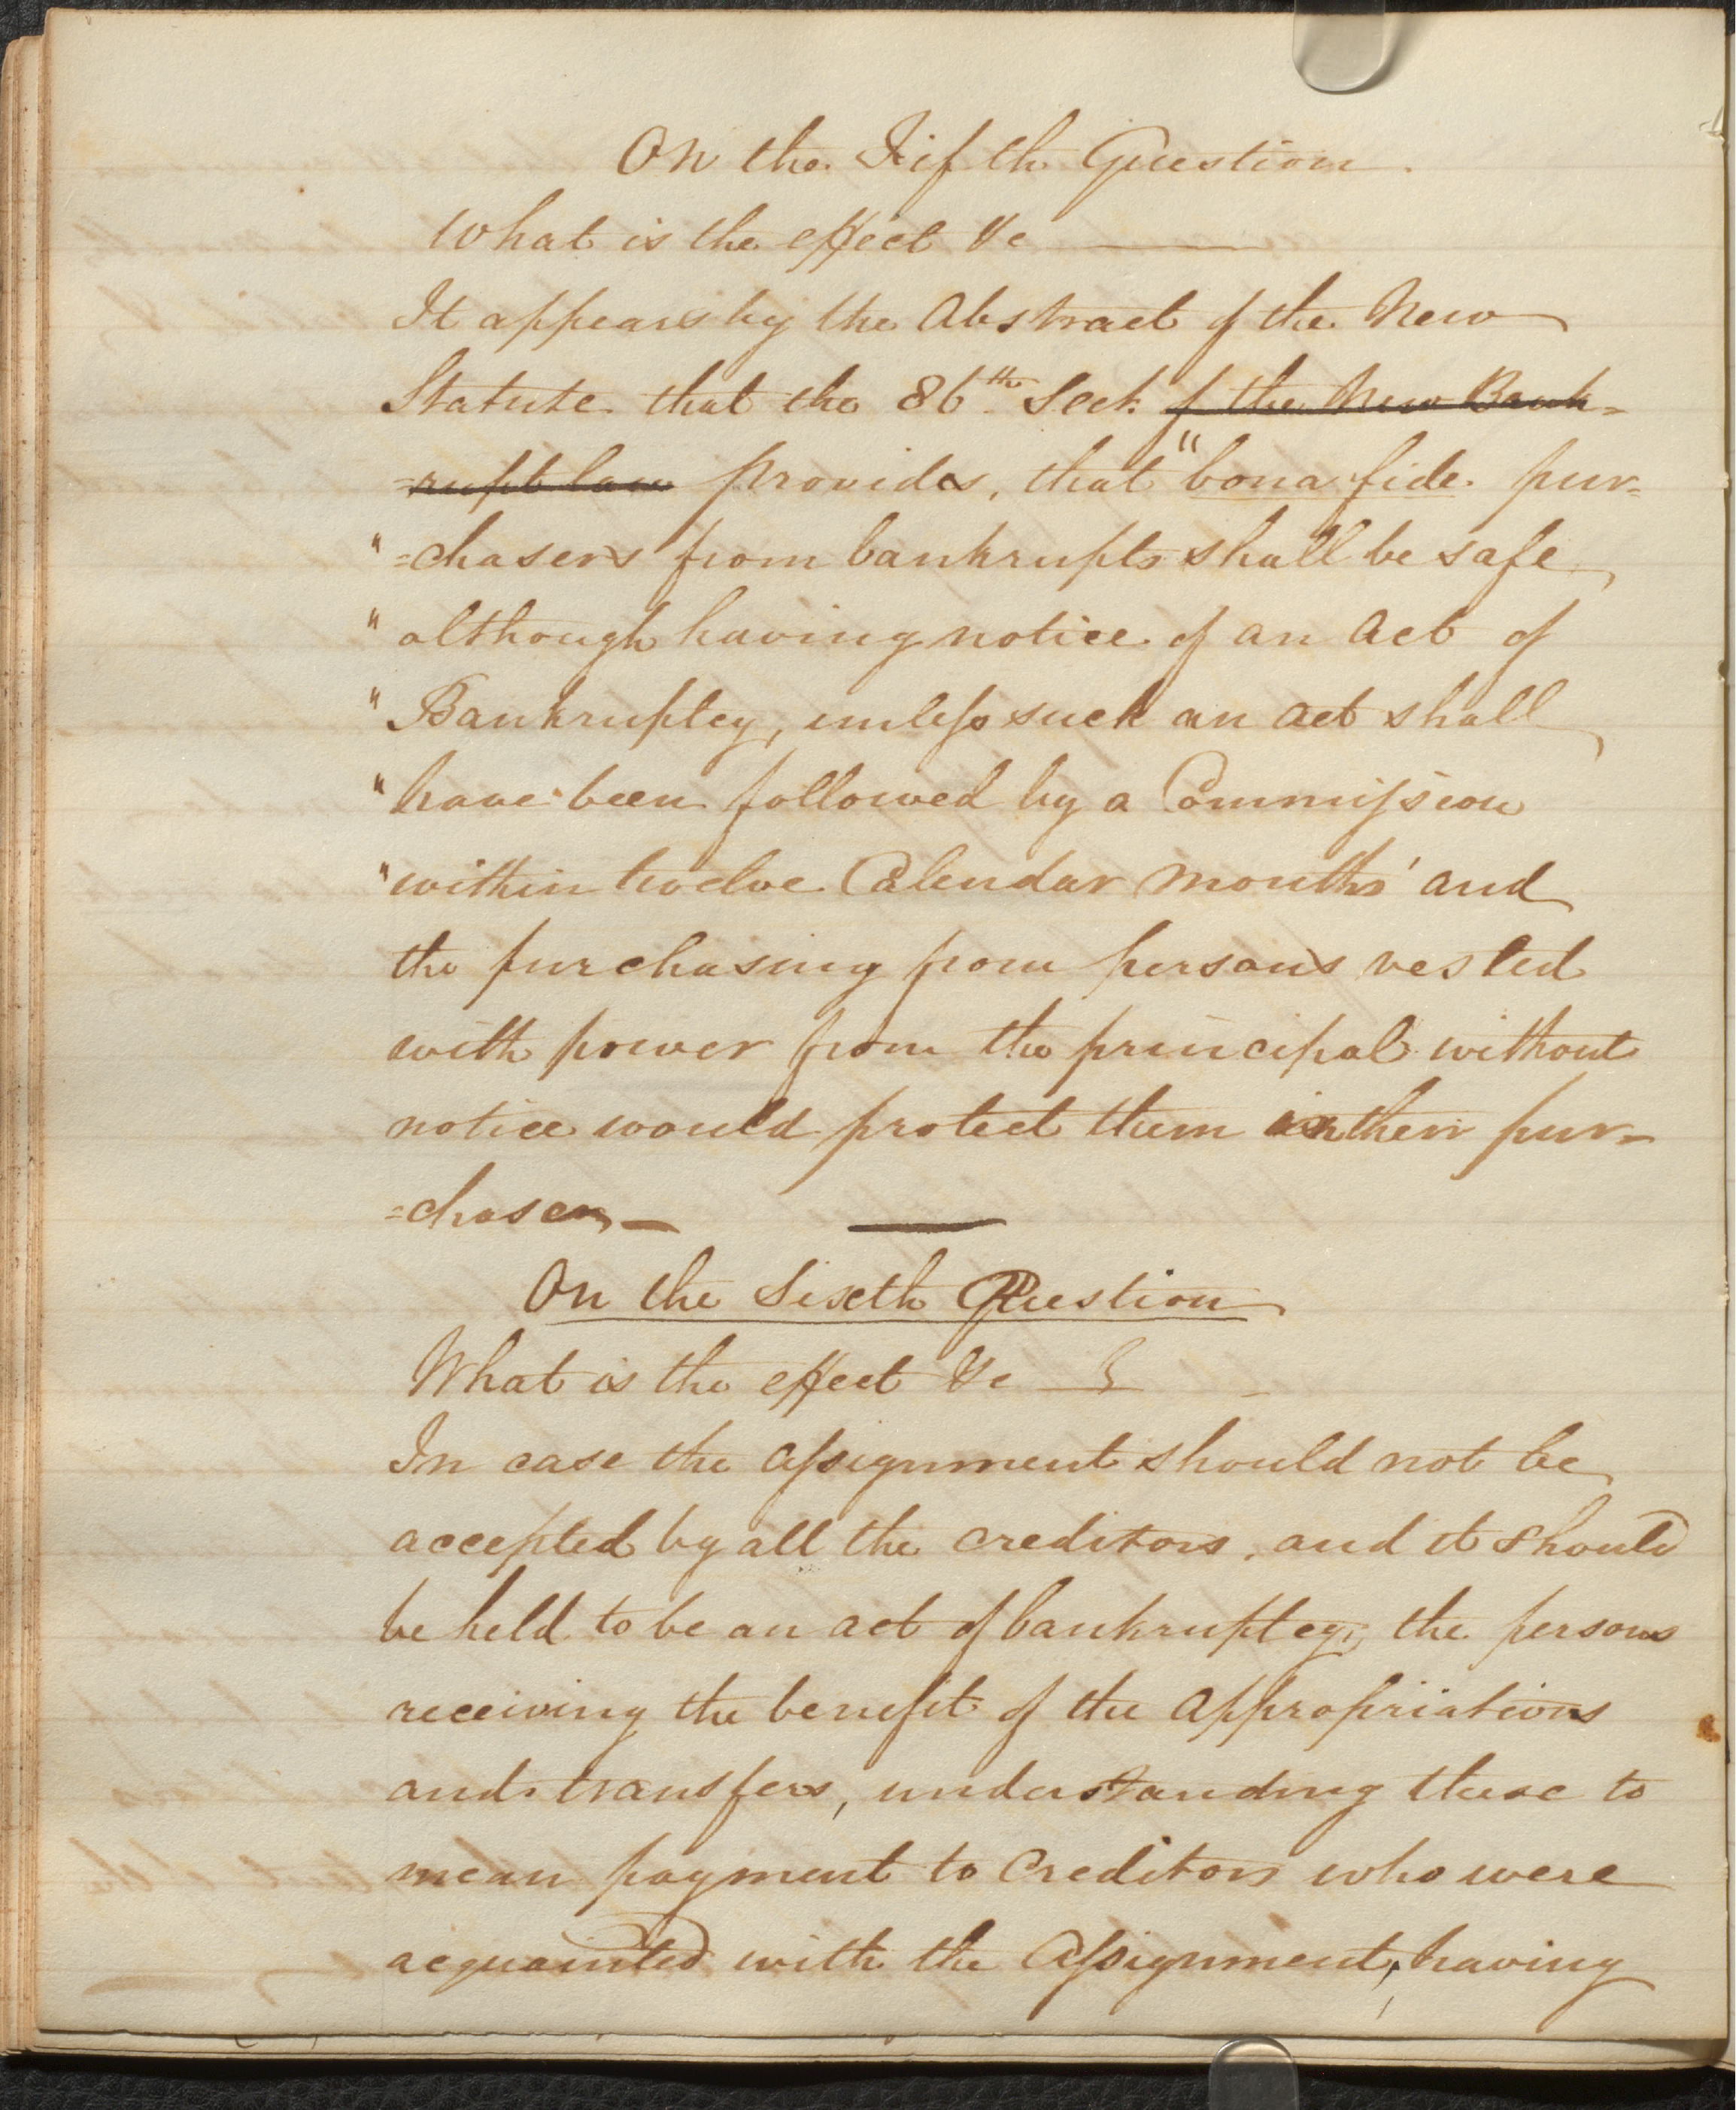 On the Fifth Question.
What is the effect &c ———
It appears by the Abstract of the New
Statute that the 86th Sect. of the New Bank=
=rupt law provides, that "bona fide pur=
"=chasers from bankrupts shall be safe,
"although having notice of an Act of
"Bankruptcy, unless such an act shall
"have been followed by a Commission
"within twelve Calendar months' and
the purchasing from persons vested
with power from the principal without
notice would protect them in their pur=
=chases,—
On the Sixth Question
What is the effect &c —
In case the assignment should not be
accepted by all the creditors, and it should
be held to be an act of bankruptcy, the persons
receiving the benefit of the appropriations
and transfers, understanding these to
mean payment to Creditors who were
acquainted with the Assignment, having